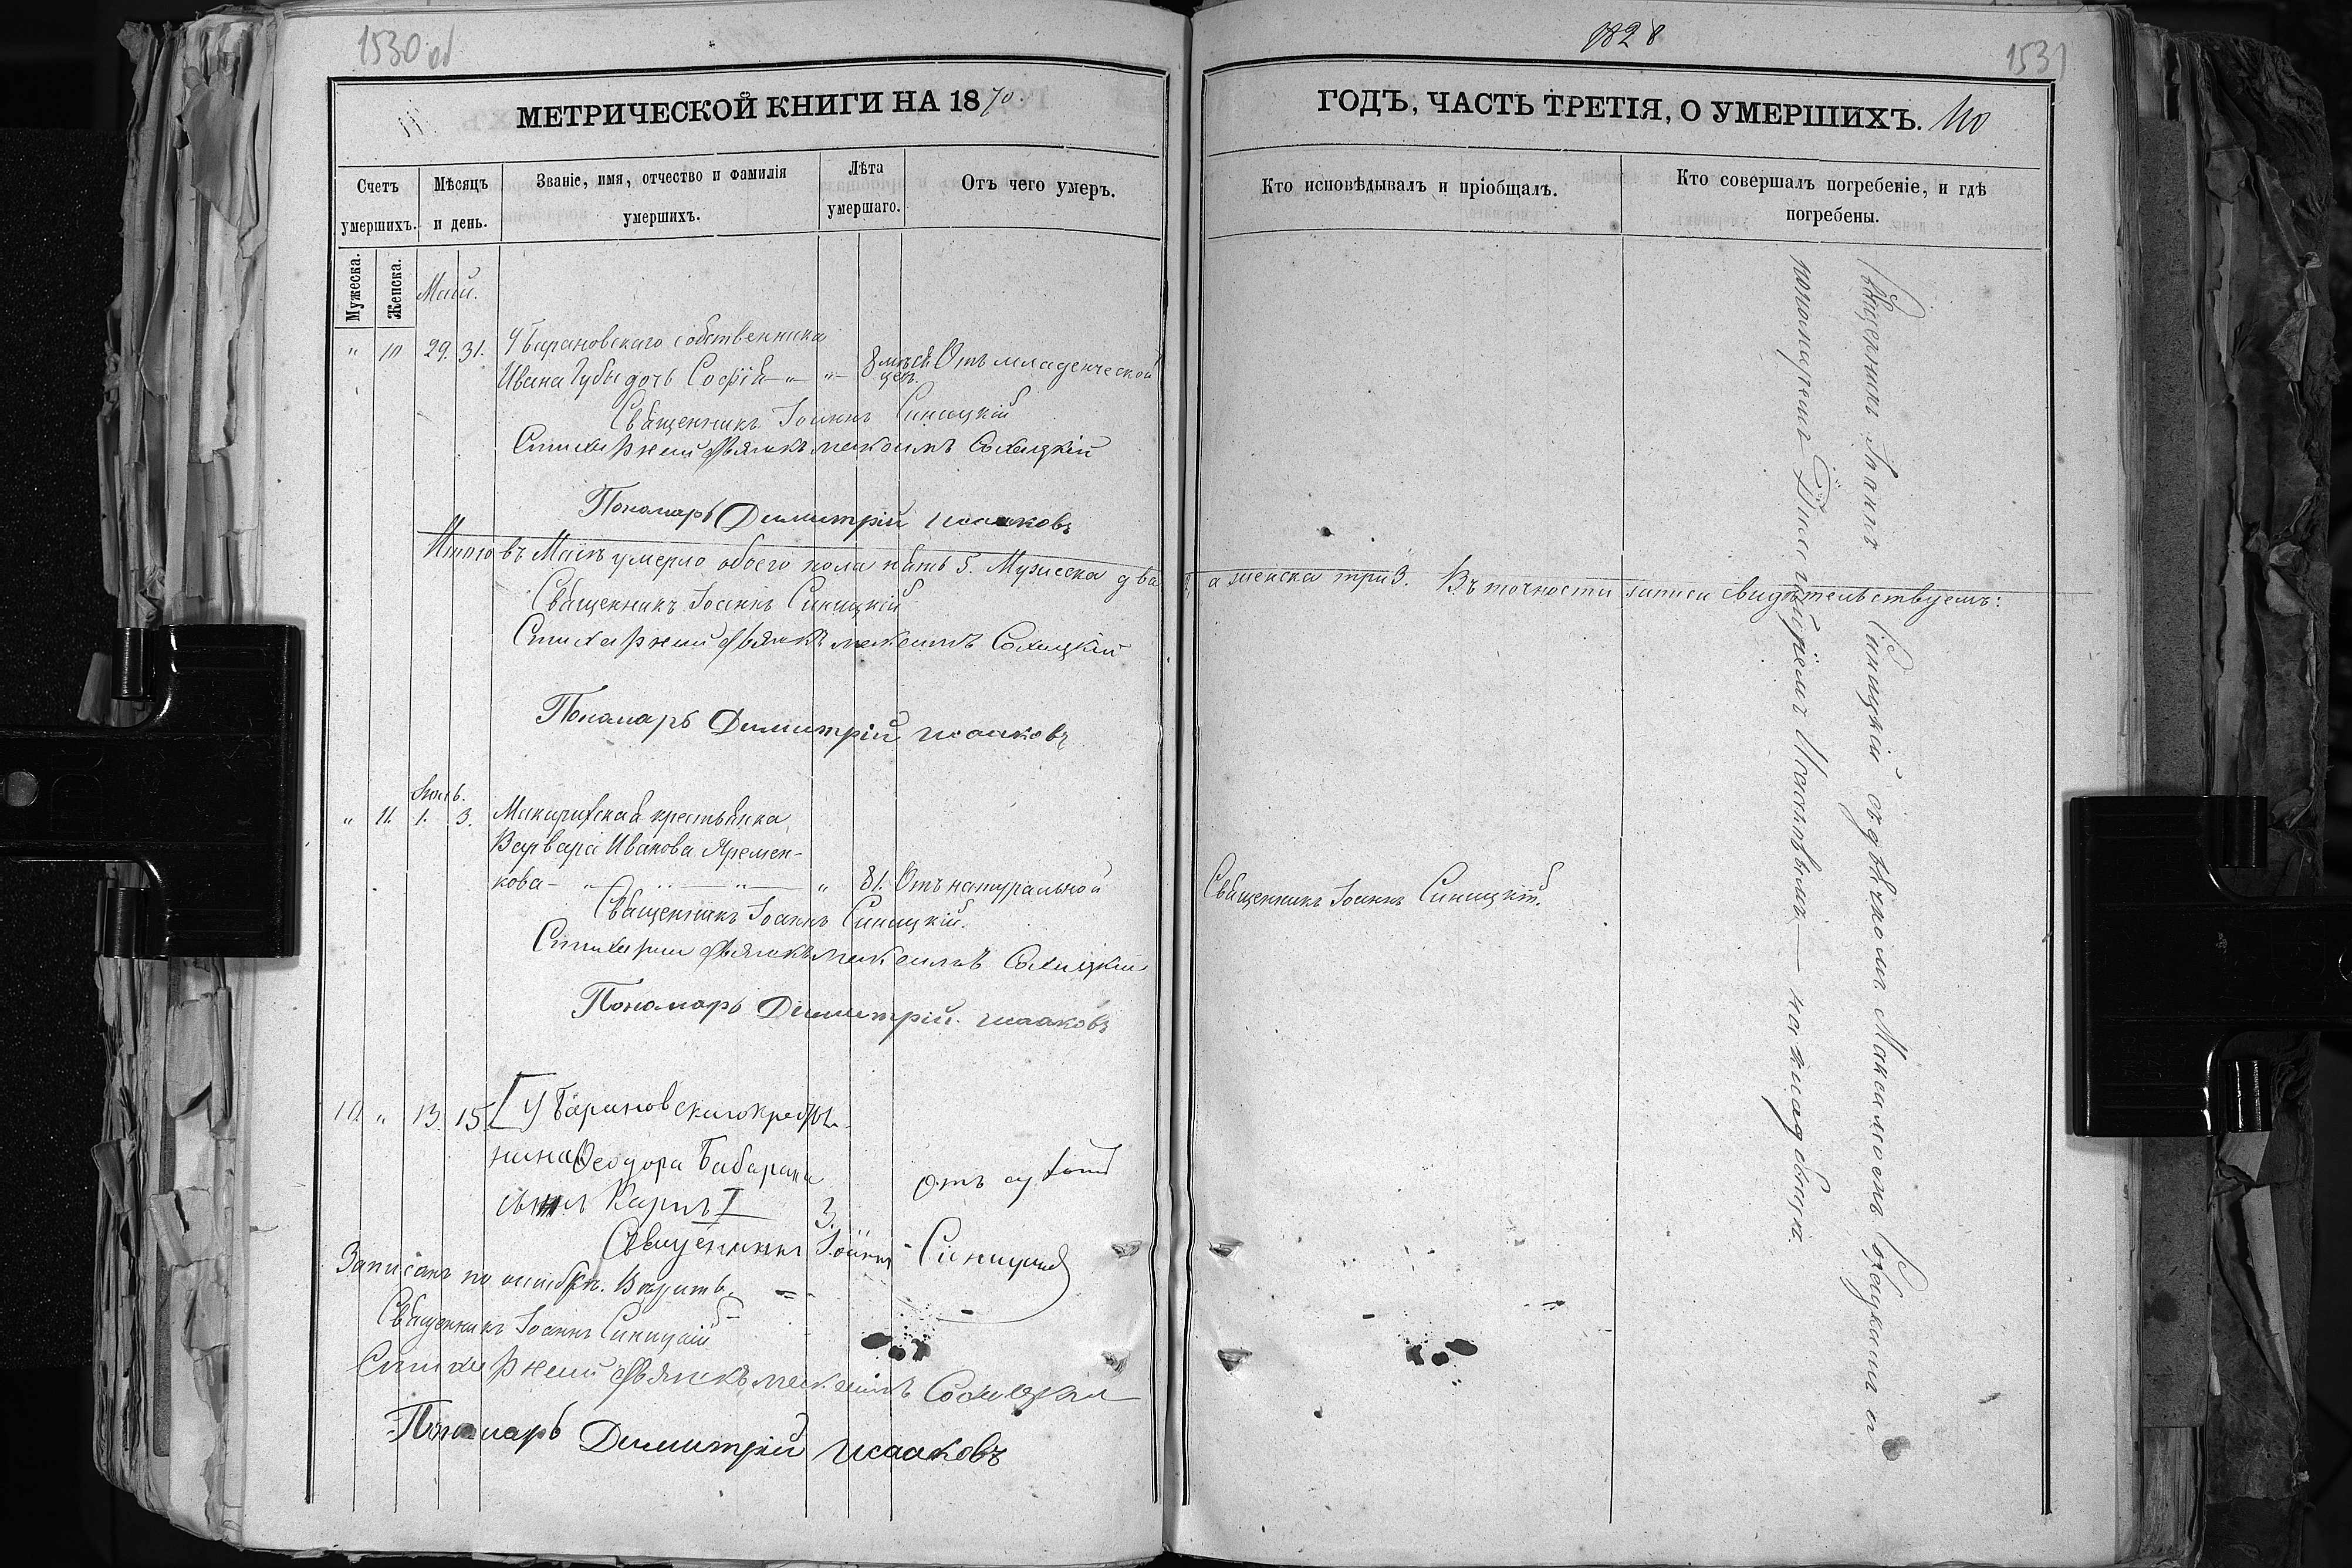 1530 об
МЕТРИЧЕСКОЙ КНИГИ НА 1870.
Счетъ умершихъ.
Мѣсяцъ и день.
Званіе, имя, отчество и фамилія умершихъ.
Лѣта умершаго.
Отъ чего умеръ.
Мужеска.
Женска.
Май.
" 10 29. 31. У Барановскаго собственника
Ивана Губы дочь Софія — " — " — 8 мѣся Отъ младенческой
цев.
Священникъ Іоаннъ Синицкій
Стихарный Дьячекъ Максимъ Сохацкій
Пономарь Димитрій Исааковъ
Итого въ Маѣ умерло обоего пола пять 5. Мужеска два
Священникъ Іоаннъ Синицкій
Стихарный Дьячекъ Максимъ Сохацкій
Пономарь Димитрій Исааковъ
Іюнь.
" 11. 1. 3. крестьянка
Варвара Иванова Яремен-
кова — " — " — " — " 81. Отъ натуральной
Священникъ Іоаннъ Синицкій.
Стихарный Дьячекъ Максимъ Сохацкій
Пономарь Димитрій Исааковъ
10. " 13. 15. [У Барановскаго крестья-
нина Ѳеодора
сынъ Карпъ] 3. " отъ
Священникъ Іоаннъ Синицкій
Записанъ по ошибкѣ.
Священникъ Іоаннъ Синицкій
Стихарный Дьячекъ Максимъ Сохацкій
Пономарь Димитрій Исааковъ
1828
1531
ГОДЪ, ЧАСТЬ ТРЕТІЯ, О УМЕРШИХЪ. 110
Кто исповѣдывалъ и пріобщалъ.
Кто совершалъ погребеніе, и гдѣ погребены.
2, а женска три 3. Въ точности записи свидѣтельствуемъ:
Священникъ Іоаннъ Синицкій.
Священникъ Іоаннъ Синицкій съ дьячкомъ Максимомъ Сохацкимъ и
пономаремъ Исааковымъ — на кладбищѣ.